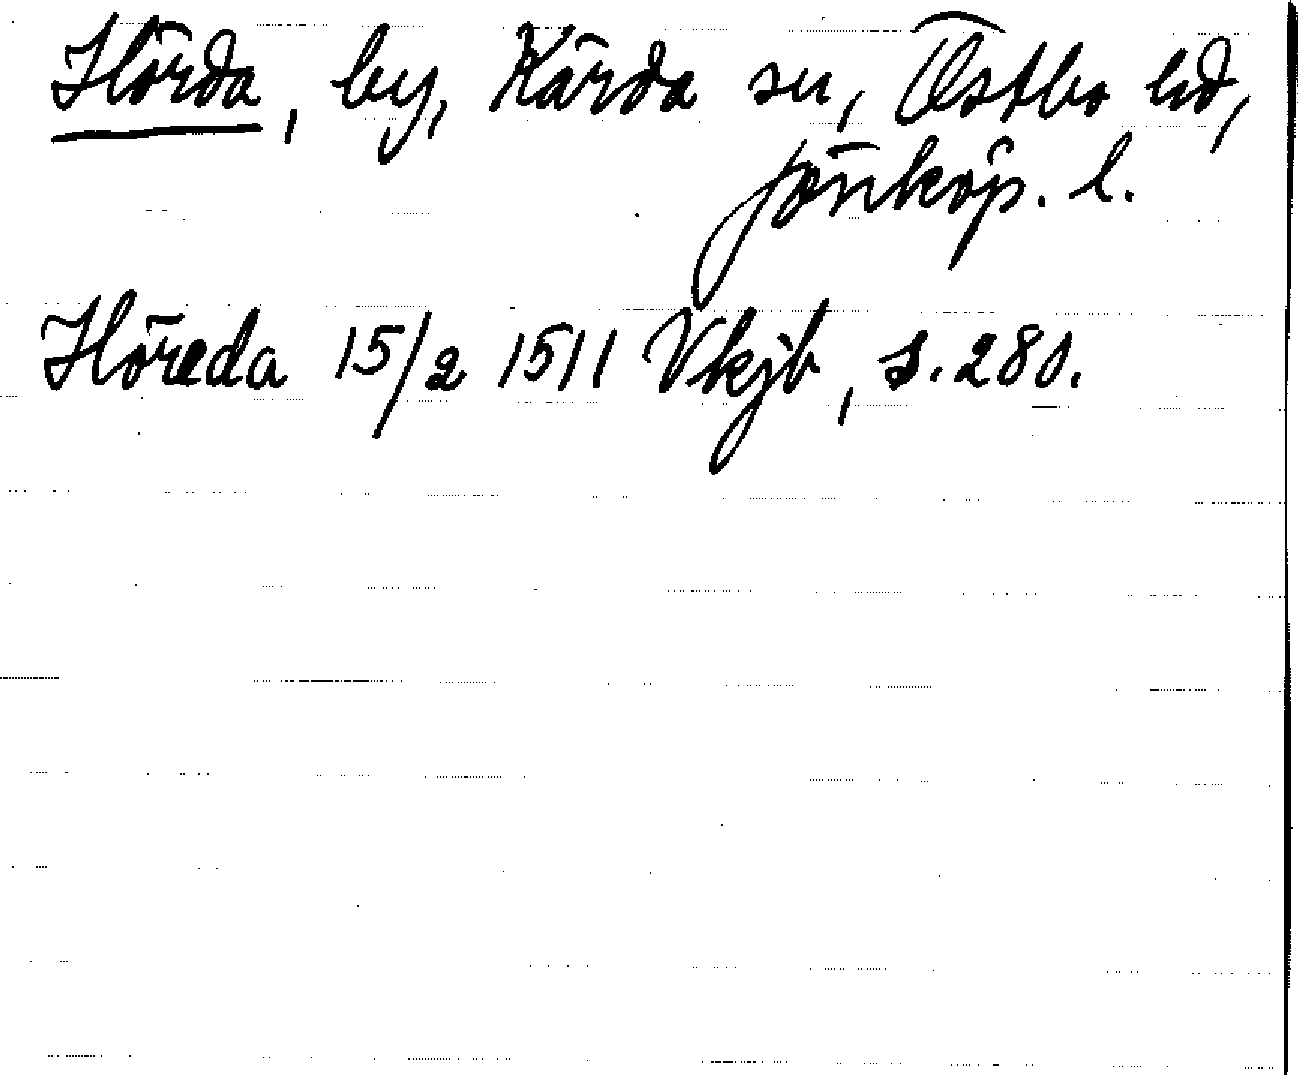 Hörda, by, Kärda sn, Östbo hd,
Jönköp. l.
Höreda 15/2 1511 Vkjb, s. 280.